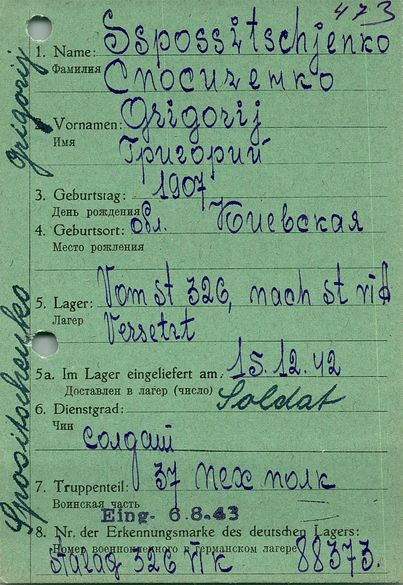 473
1. Name: Sspossitschjenko
Фамилия Спосиченко
2. Vornamen: Grigorij
Имя Григорий
3. Geburtstag: 1907
День рождения
4. Geburtsort: обл. Киевская
Место рождения
5. Lager: Vom st 326, nach st VI A
Лагерь Versetzt
5a. Im Lager eingeliefert am: 15.12.42
Доставлен в лагерь (число)
6. Dienstgrad: Soldat
Чин
солдат
7. Truppenteil: 37 пех полк
Воинская часть
Eing. 6.8.43
8. Nr. der Erkennungsmarke des deutschen Lagers:
Номер военнопленного в германском лагере 88373.
Stalag 326 VI K
Spositschenko
Grigorij